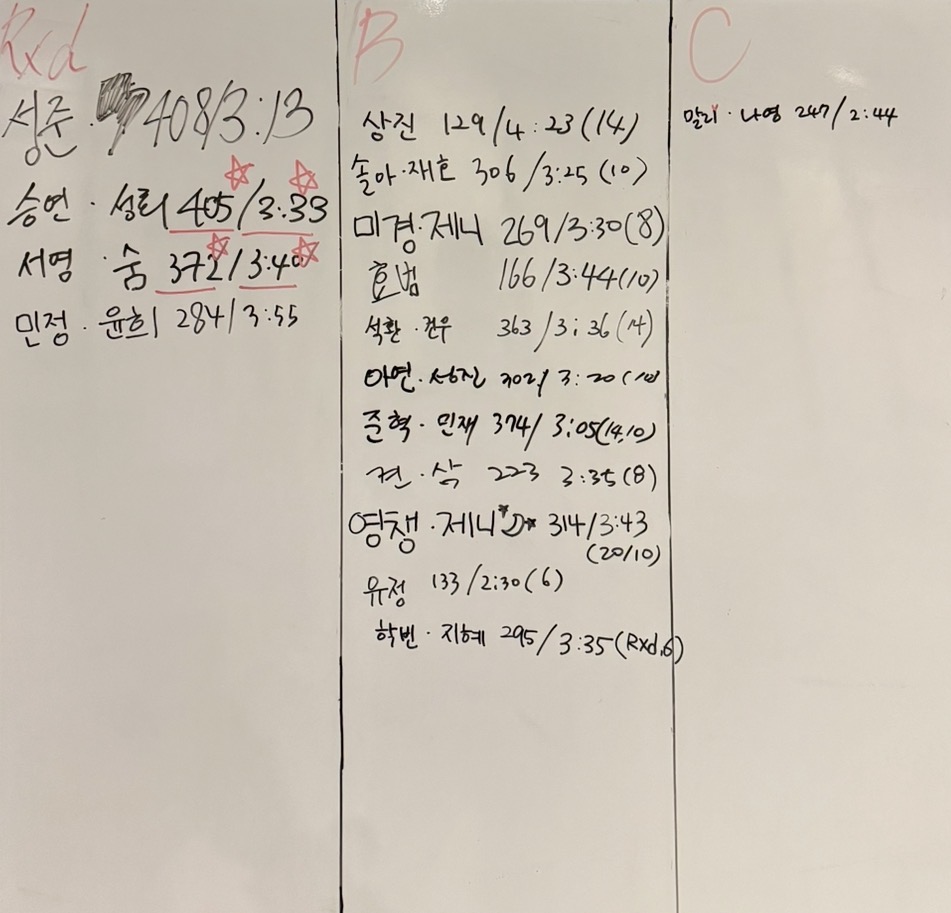 Rxd
성준 · 408/3:13
승연 · 성희 405/3:33
서영 · 숨 372/3:40
민정 · 윤희 284/3:55
B
상진 129/4:23(14)
솔아·재호 306/3:25(10)
미경·제니 269/3:30(8)
효범 166/3:44(10)
석환·건우 363/3:36(14)
아연·성진 302/3:20(10)
준혁·민재 374/3:05(14,10)
켠·삭 223 3:35(8)
영챙·제니 314/3:43
(20/10)
유정 133/2:30(6)
학빈·지혜 295/3:35(Rxd,6)
C
말리·나영 247/2:44